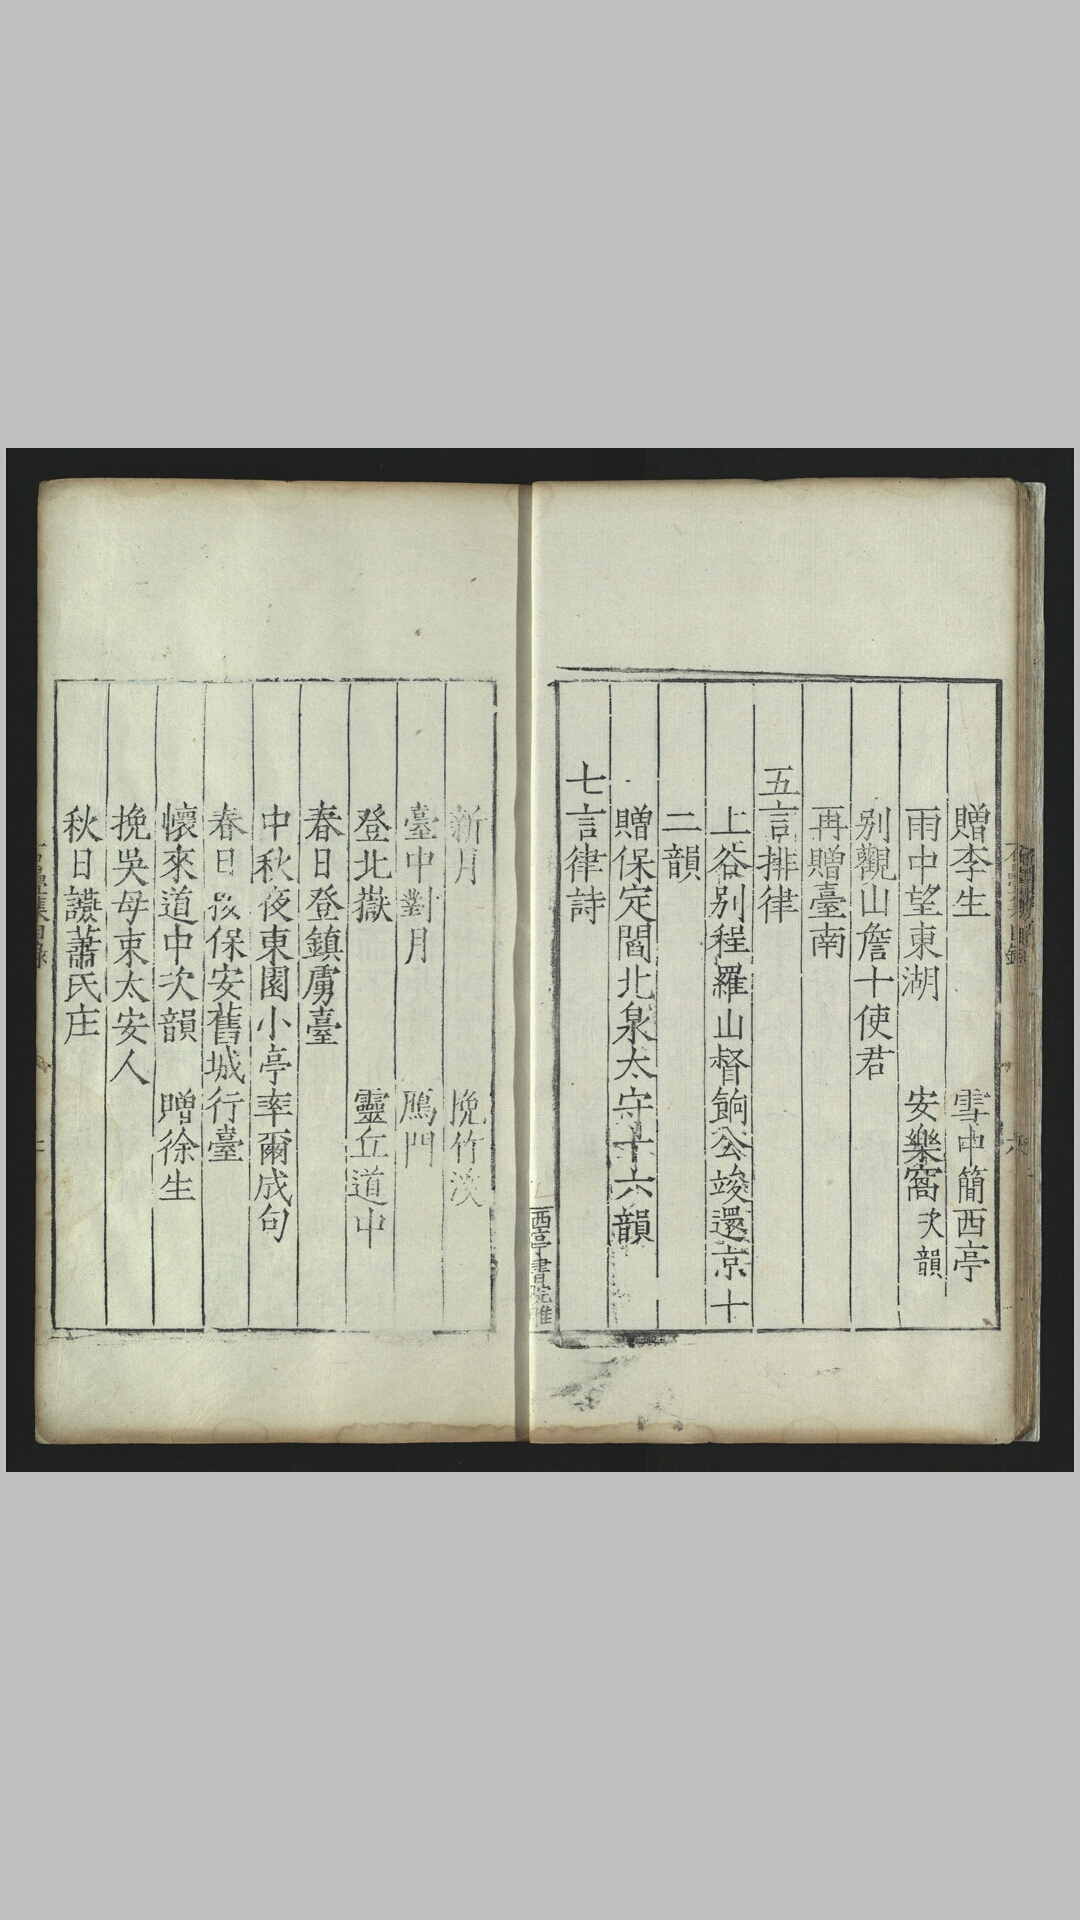 贈李生 雪中簡西亭
雨中望東湖 安樂窩次韻
別觀山詹十使君
再贈臺南
五言排律
上谷別程羅山督餉公竣還京十
二韻
贈保定閻北泉太守十六韻
七言律詩
西亭書院雕
新月 挽竹淡
臺中對月 鴈門
登北嶽 靈丘道中
春日登鎮虜臺
中秋夜東園小亭率爾成句
春日 保安舊城行臺
懷來道中次韻 贈徐生
挽吳母束太安人
秋日讌蕭氏庄